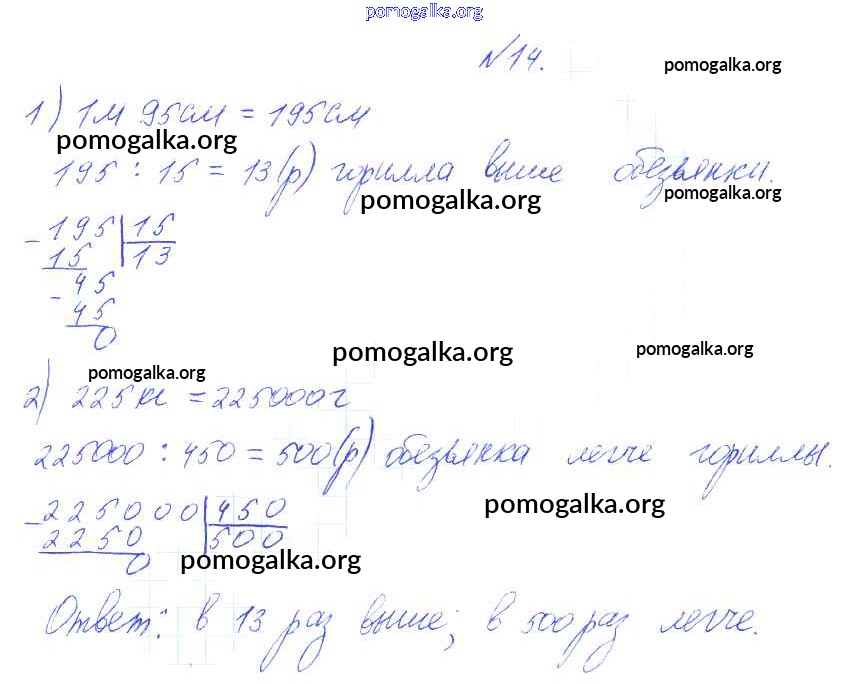 pomogalka.org
№14.
pomogalka.org
1) 1м 95см = 195см
pomogalka.org
195 : 15 = 13(р) горилла выше обезьянки.
pomogalka.org
pomogalka.org
- 195 | 15
15 13
- 45
45
0
pomogalka.org
pomogalka.org
pomogalka.org
2) 225кг = 225000г
225000 : 450 = 500(р) обезьянка легче гориллы.
- 225000 | 450
pomogalka.org
2250 500
0
pomogalka.org
Ответ: в 13 раз выше; в 500 раз легче.